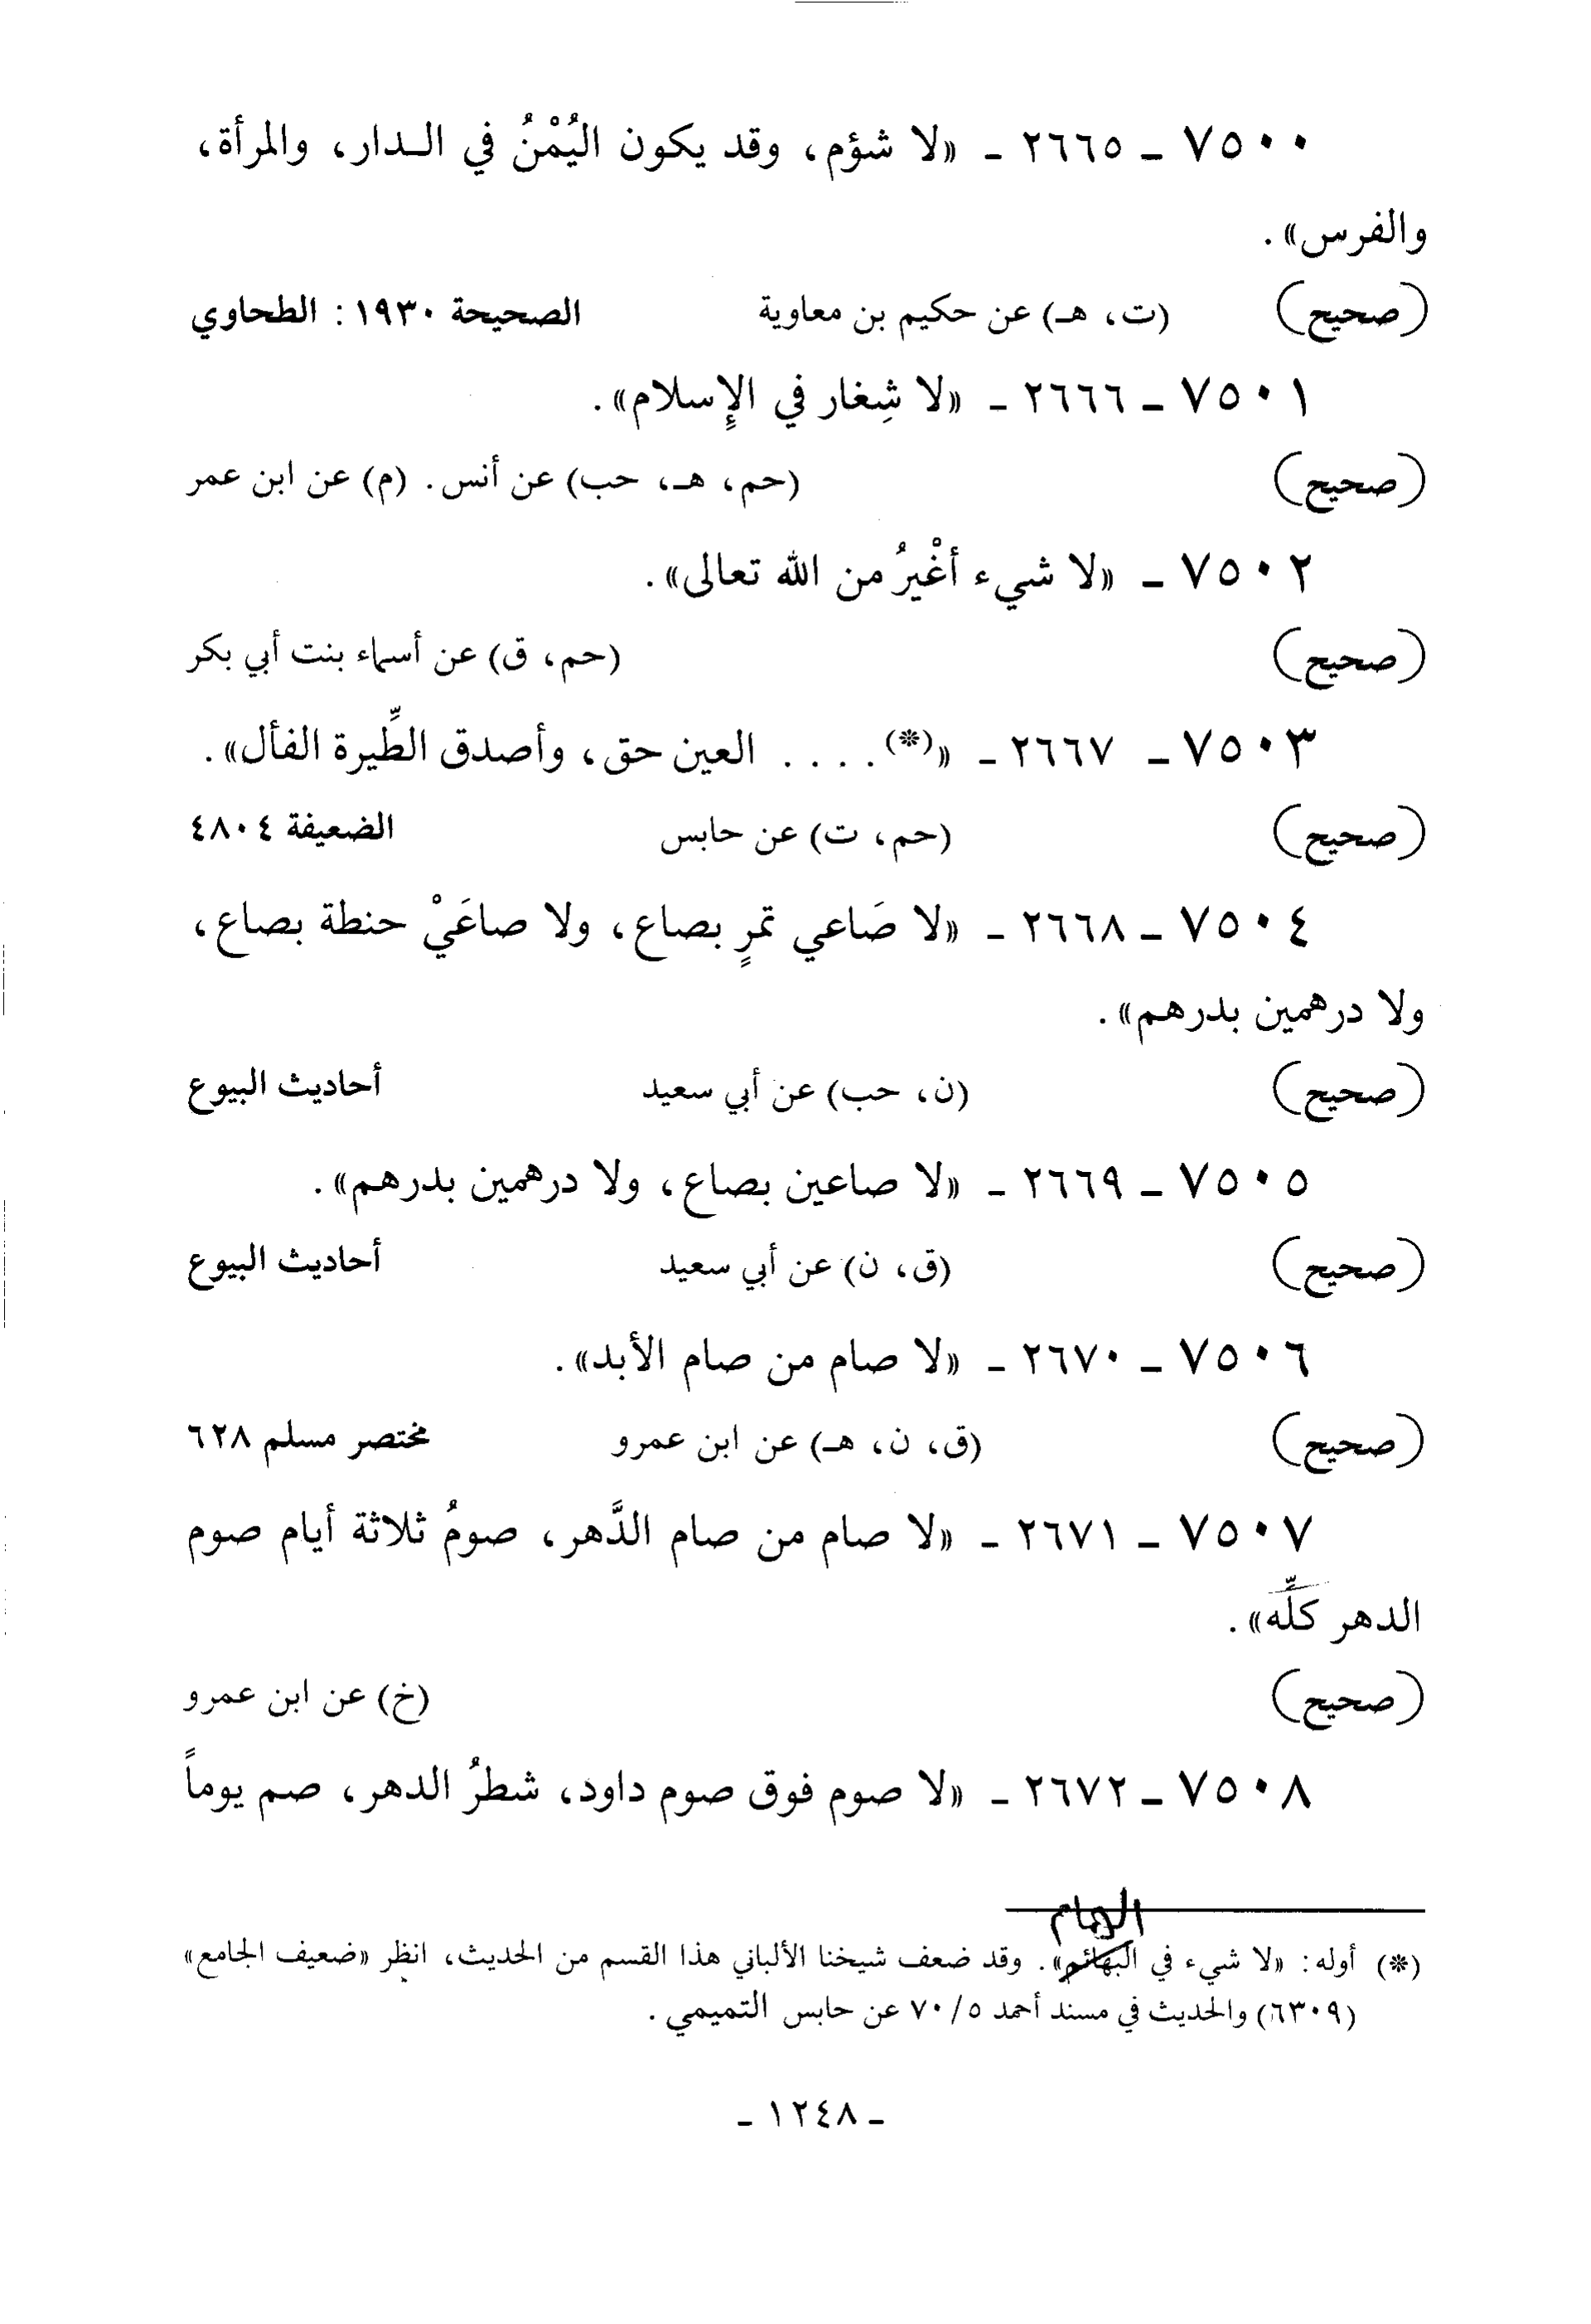 ٧٥٠٠ – ٢٦٦٥ – «لا شؤم، وقد يكون اليُمْنُ في الـدار، والمرأة،
والفرس».
(صحيح) (ت، هـ) عن حكيم بن معاوية الصحيحة ١٩٣٠: الطحاوي
٧٥٠١ – ٢٦٦٦ – «لا شِغار في الإِسلام».
(صحيح) (حم، هـ، حب) عن أنس. (م) عن ابن عمر
٧٥٠٢ – «لا شيء أغْيرُ من الله تعالى».
(صحيح) (حم، ق) عن أسماء بنت أبي بكر
٧٥٠٣ – ٢٦٦٧ – «(*).... العين حق، وأصدق الطِّيرة الفأل».
(صحيح) (حم، ت) عن حابس الضعيفة ٤٨٠٤
٧٥٠٤ – ٢٦٦٨ – «لا صَاعي تمرٍ بصاع، ولا صاعَيْ حنطة بصاع،
ولا درهمين بدرهم».
(صحيح) (ن، حب) عن أبي سعيد أحاديث البيوع
٧٥٠٥ – ٢٦٦٩ – «لا صاعين بصاع، ولا درهمين بدرهم».
(صحيح) (ق، ن) عن أبي سعيد أحاديث البيوع
٧٥٠٦ – ٢٦٧٠ – «لا صام من صام الأبد».
(صحيح) (ق، ن، هـ) عن ابن عمرو مختصر مسلم ٦٢٨
٧٥٠٧ – ٢٦٧١ – «لا صام من صام الدَّهر، صومُ ثلاثة أيام صوم
الدهر كلِّه».
(صحيح) (خ) عن ابن عمرو
٧٥٠٨ – ٢٦٧٢ – «لا صوم فوق صوم داود، شطرُ الدهر، صم يوماً
الهام
(*) أوله: «لا شيء في البهائم». وقد ضعف شيخنا الألباني هذا القسم من الحديث، انظر «ضعيف الجامع»
(٦٣٠٩) والحديث في مسند أحمد ٥/ ٧٠ عن حابس التميمي.
– ١٢٤٨ –